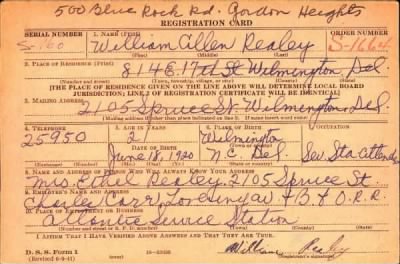 500 Blue Rock Rd. Gordon Heights
REGISTRATION CARD
SERIAL NUMBER 1. NAME (Print) ORDER NUMBER
S-160 William Allen Realey S-1664
2. PLACE OF RESIDENCE (Print)
814 E 17th St Wilmington Del.
(Number and street) (Town, township, village, or city) (County) (State)
[THE PLACE OF RESIDENCE GIVEN ON THE LINE ABOVE WILL DETERMINE LOCAL BOARD
JURISDICTION; LINE 2 OF REGISTRATION CERTIFICATE WILL BE IDENTICAL]
3. MAILING ADDRESS
2105 Spruce St. Wilmington, Del.
[Mailing address if other than place indicated on line 2. If same insert word same]
4. TELEPHONE 5. AGE IN YEARS 6. PLACE OF BIRTH
25950 21 Wilmington
DATE OF BIRTH
June 18, 1920 N.C. Del. Ser. Sta. Attend.
8. NAME AND ADDRESS OF PERSON WHO WILL ALWAYS KNOW YOUR ADDRESS
Mrs. Realey, 2105 Spruce St.
9. EMPLOYER'S NAME AND ADDRESS
Charles Carr, & B. & O. R.R.
10. PLACE OF EMPLOYMENT OR BUSINESS
Atlantic Service Station
(Number and street or R. F. D. number) (Town) (County) (State)
I AFFIRM THAT I HAVE VERIFIED ABOVE ANSWERS AND THAT THEY ARE TRUE.
D. S. S. Form 1
(Revised 6-9-41) William Realey
(Registrant's signature)